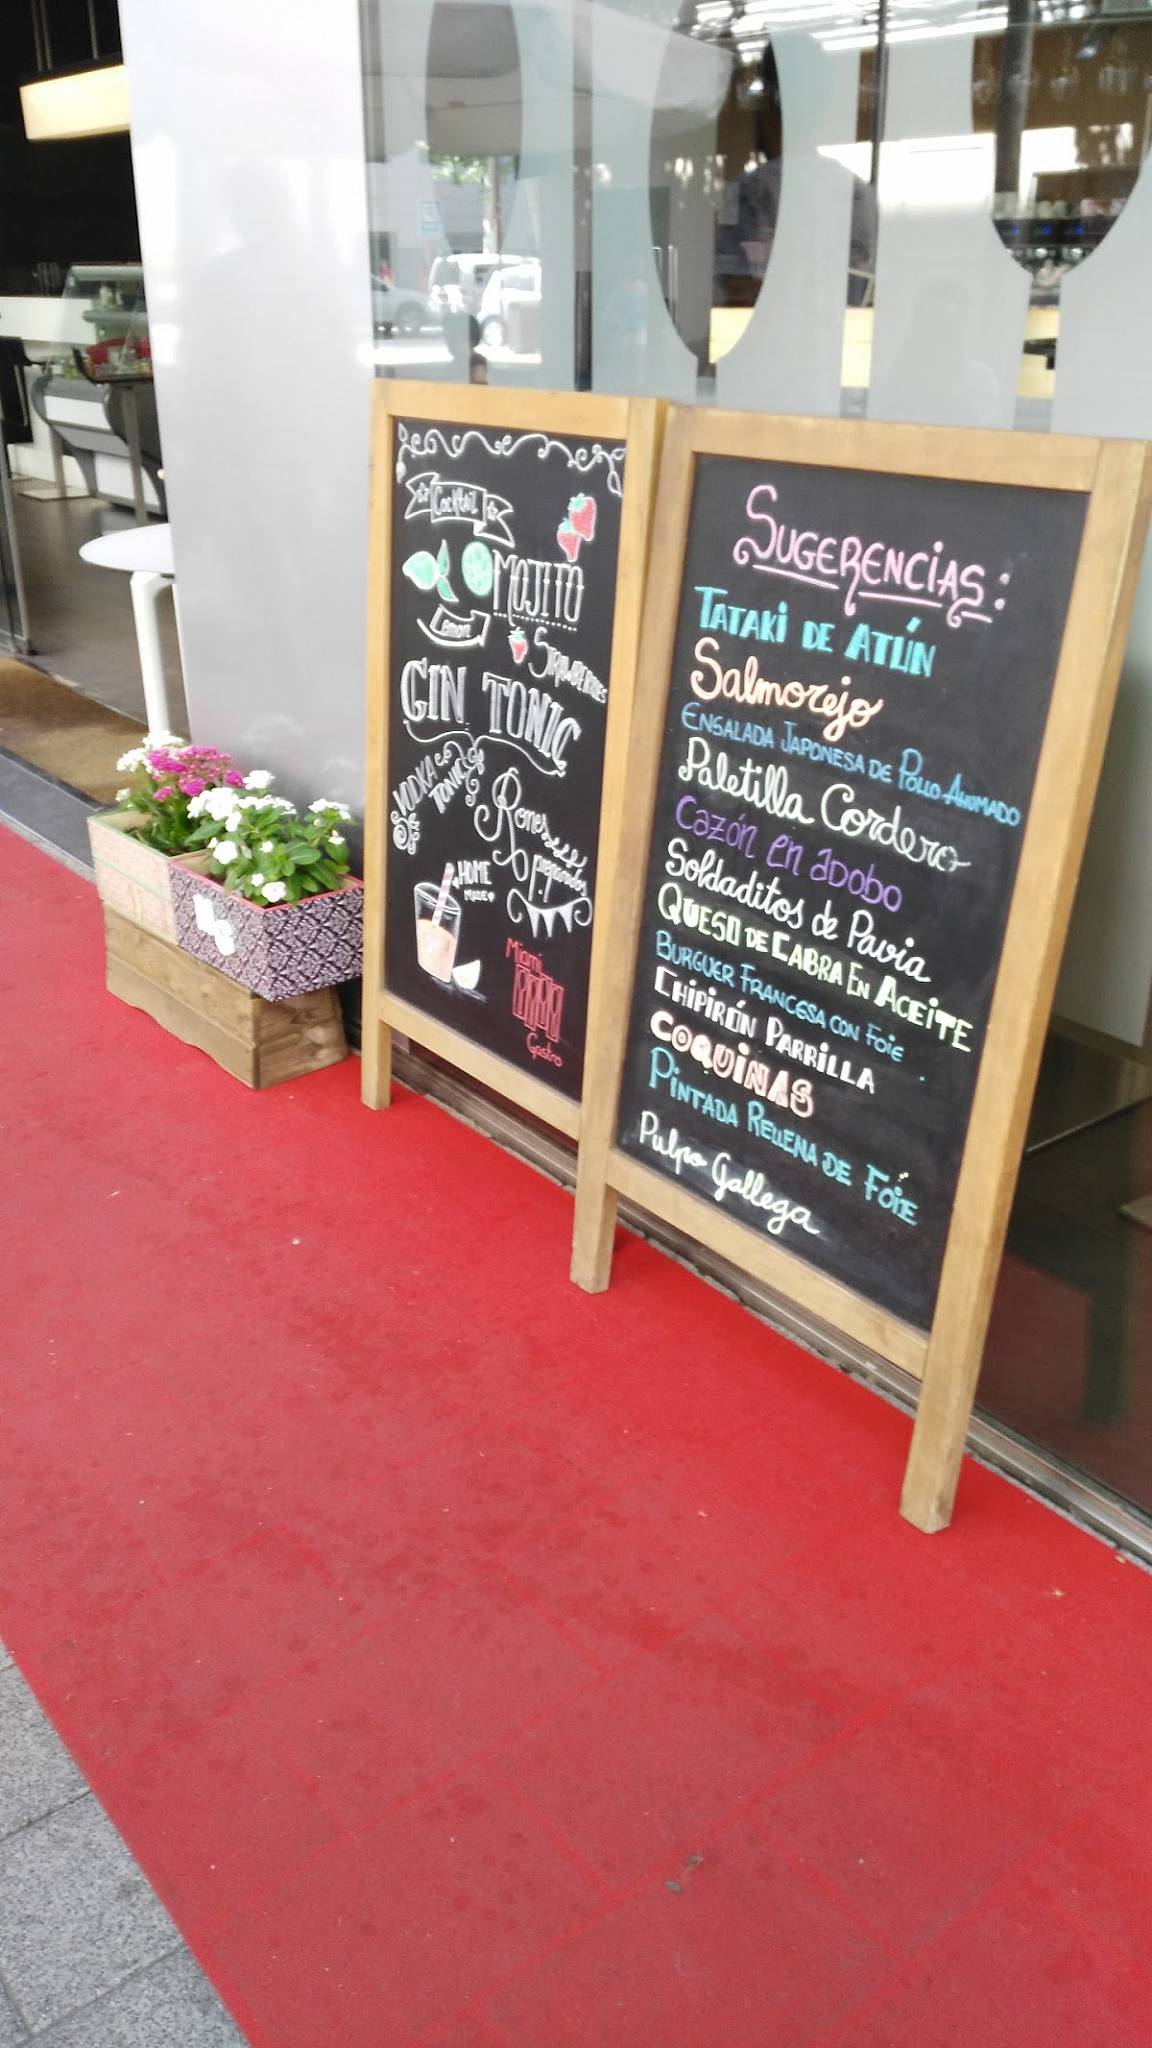 Cocktail
MOJITO
Lemon
STRAWBERRIES
GIN TONIC
VODKA
TONIC
Rones
preparados
HOME
MADE
Miami
Gastro
SUGERENCIAS:
TATAKI DE ATÚN
Salmorejo
ENSALADA JAPONESA DE POLLO AHUMADO
Paletilla Cordero
CAZÓN EN ADOBO
Soldaditos de Pavia
QUESO DE CABRA EN ACEITE
BURGUER FRANCESA CON FOIE
CHIPIRÓN PARRILLA
COQUINAS
PINTADA RELLENA DE FOIE
Pulpo Gallega